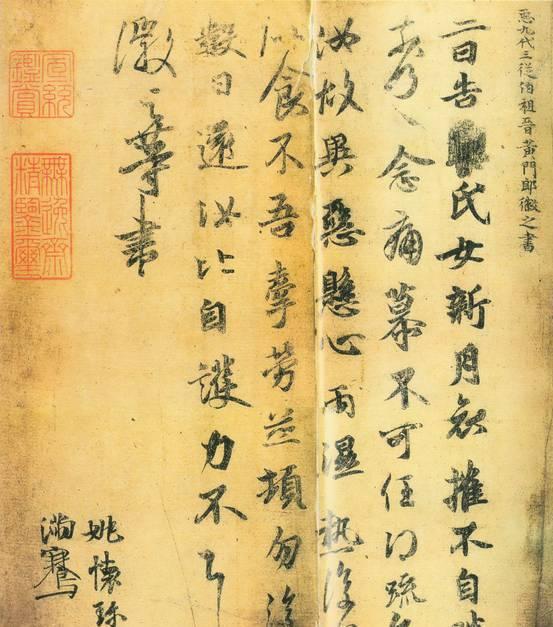 𢘑九代三從伯祖晉黃門郎徽之書
二日告氏女新月哀摧不自
奈何〻念痛慕不可任得疏
汝故異惡懸心雨濕熱復
似食不吾牽勞並頓勿復
數日還汝比自護力不具
徽之等書
姚懷珍
滿騫
宣統鑒賞
無逸齋精鑒璽